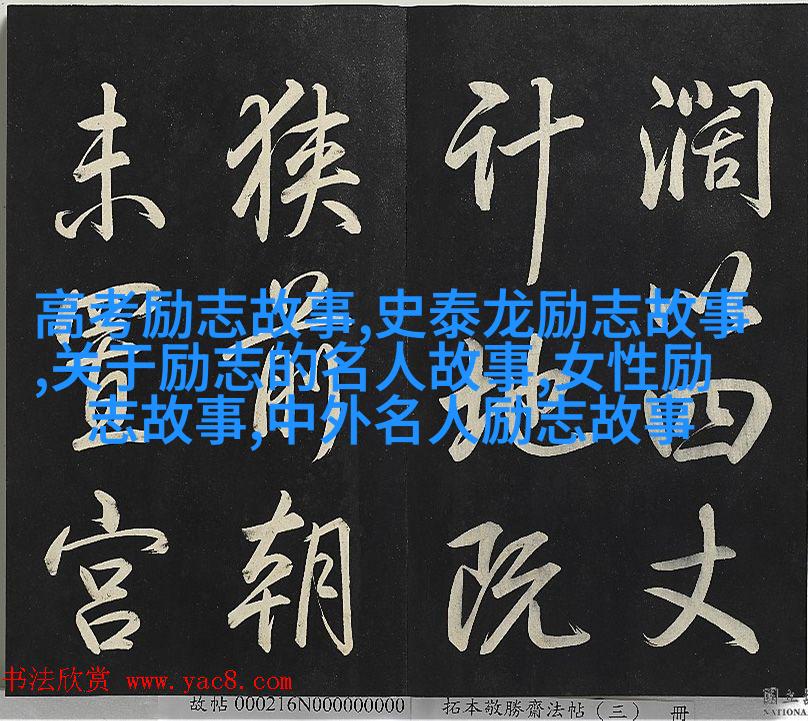 濶以四丈
計地既
狹前朝
未置宫
高考励志故事,史泰龙励志故事
,关于励志的名人故事,女性励
志故事,中外名人励志故事
书法欣赏 www.yac8.com
故帖 000216N000000000 拓本敬勝齋法帖（三） 冊
國立
NATIONA